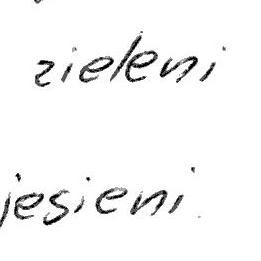 zieleni
jesieni